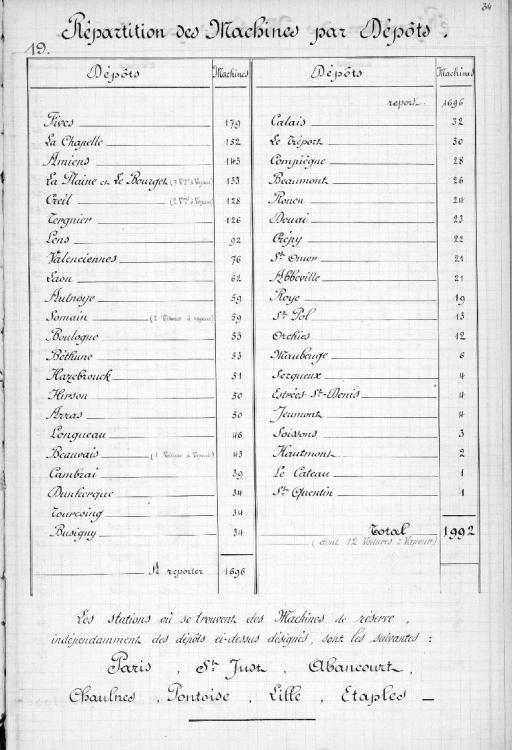 34
Répartition des Machines par Dépôts.
19.
Dépôts Machines
Fives 179
La Chapelle 152
Amiens 143
La Plaine et Le Bourget 133
Creil 128
Tergnier 126
Lens 92
Valenciennes 76
Laon 62
Aulnoye 59
Somain (2 Voitures à vapeur) 59
Boulogne 53
Béthune 53
Hazebrouck 51
Hirson 50
Arras 50
Longueau 46
Beauvais (1 Voiture à Vapeur) 43
Cambrai 39
Dunkerque 34
Tourcoing 34
Busigny 34
A reporter 1696
Dépôts Machines
report. 1696
Calais 32
Le Tréport 30
Compiègne 28
Beaumont 26
Rouen 24
Douai 23
Crépy 22
St. Omer 21
Abbeville 21
Roye 19
St. Pol 13
Orchies 12
Maubeuge 6
Serqueux 4
Estrées St-Denis 4
Jeumont 4
Soissons 3
Hautmont 2
Le Cateau 1
St. Quentin 1
Total 1992
(dont 12 Voitures à Vapeur)
Les stations où se trouvent des Machines de réserve,
indépendamment des dépôts ci-dessus désignés, sont les suivantes :
Paris, St. Just, Abancourt,
Chaulnes, Pontoise, Lille, Etaples —